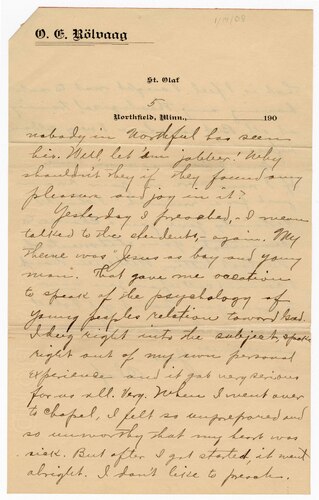 1/17/08
O. E. Rölvaag
St. Olaf
5
Northfield, Minn., 190
nobody in Northfield has seen
his. Well, let 'em jabber! Why
shouldn't they if they found any
pleasure and joy in it?
Yesterday I preached, - I mean
talked to the students, - again. My
theme was "Jesus as boy and young
man. That gave me occation
to speak of the psychology of
young peoples relation toward God.
I dug right into the subject, spoke
right out of my own personal
experiences and it got very serious
for us all. Very. When I went over
to chapel, I felt so unprepared and
so unworthy that my heart was
sick. But after I got started, it went
alright. I don't like to preach.